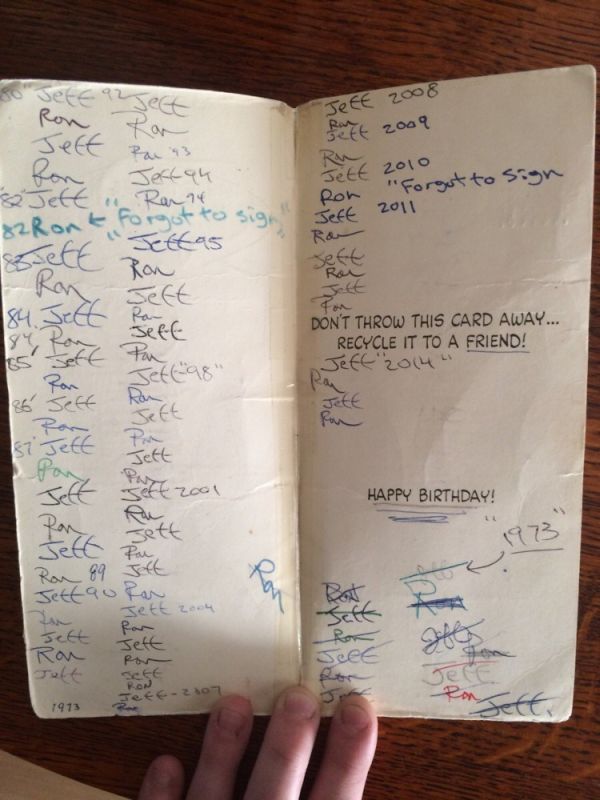 80' Jeff 92 Jeff
Ron Ron
Jeff Ron '93
Ron Jeff 94
'82 Jeff Ron 94
82 Ron ← "Forgot to sign"
Jeff 95
83 Jeff Ron
Ron Jeff
84 Jeff Ron
84 Ron Jeff
85' Jeff Ron
Ron Jeff "98"
86' Jeff Ron
Ron Jeff
87 Jeff Ron
Ron Jeff
Jeff Ron
Ron Jeff 2001
Jeff Ron
Ron 89 Jeff
Jeff 90 Ron
Ron Jeff
Jeff Ron
Ron Jeff 2004
Jeff Ron
Jeff
Ron
Jeff
RON
Jeff - 2007
1973 Ron
Ron
Jeff 2008
Ron
Jeff 2009
Ron
Jeff 2010
Ron "Forgot to sign
Jeff 2011
Ron
Jeff
Ron
Jeff
Ron
DON'T THROW THIS CARD AWAY...
RECYCLE IT TO A FRIEND!
Jeff "2014"
Ron
Jeff
Ron
HAPPY BIRTHDAY!
"1973"
Jeff
Ron Ron
Jeff
Ron Jeff
Jeff Ron
Ron Jeff
Jeff Ron
Jeff.